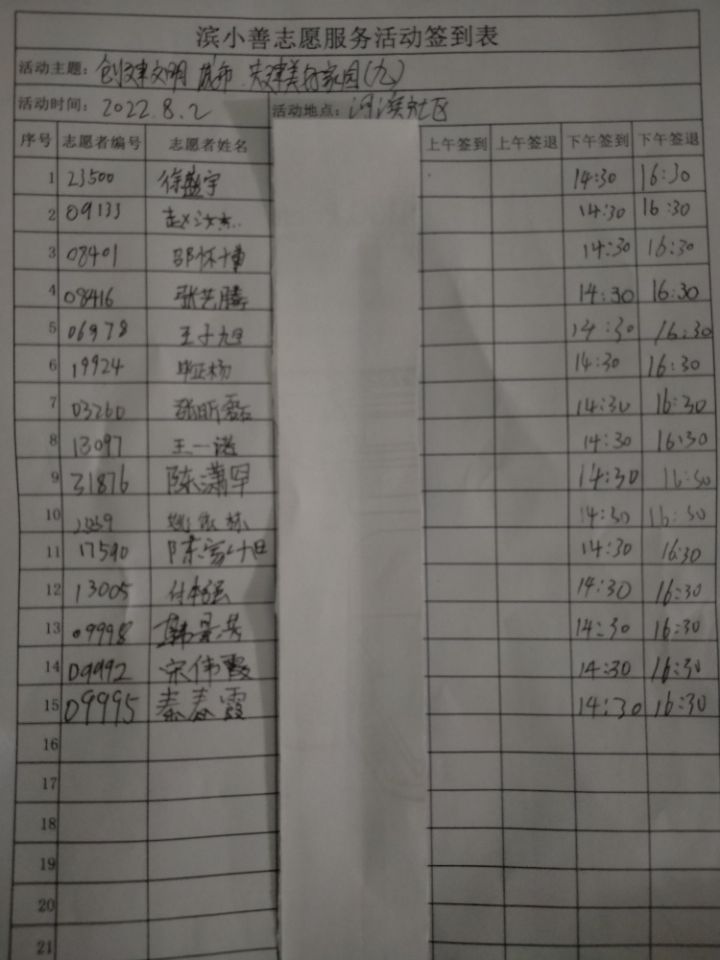 滨小善志愿服务活动签到表
活动主题: 创建文明城市 共建美好家园(九)
活动时间: 2022.8.2 活动地点: 河滨社区
序号 志愿者编号 志愿者姓名 上午签到 上午签退 下午签到 下午签退
1 23500 14:30 16:30
2 09133 14:30 16:30
3 08401 邵怀博 14:30 16:30
4 08416 张艺腾 14:30 16:30
5 06978 王子旭 14:30 16:30
6 19924 14:30 16:30
7 03260 张昕磊 14:30 16:30
8 13097 王一诺 14:30 16:30
9 31876 陈潇罕 14:30 16:30
10 14:30 16:30
11 17590 14:30 16:30
12 13005 14:30 16:30
13 09998 14:30 16:30
14 09992 宋伟霞 14:30 16:30
15 09995 秦春霞 14:30 16:30
16
17
18
19
20
21